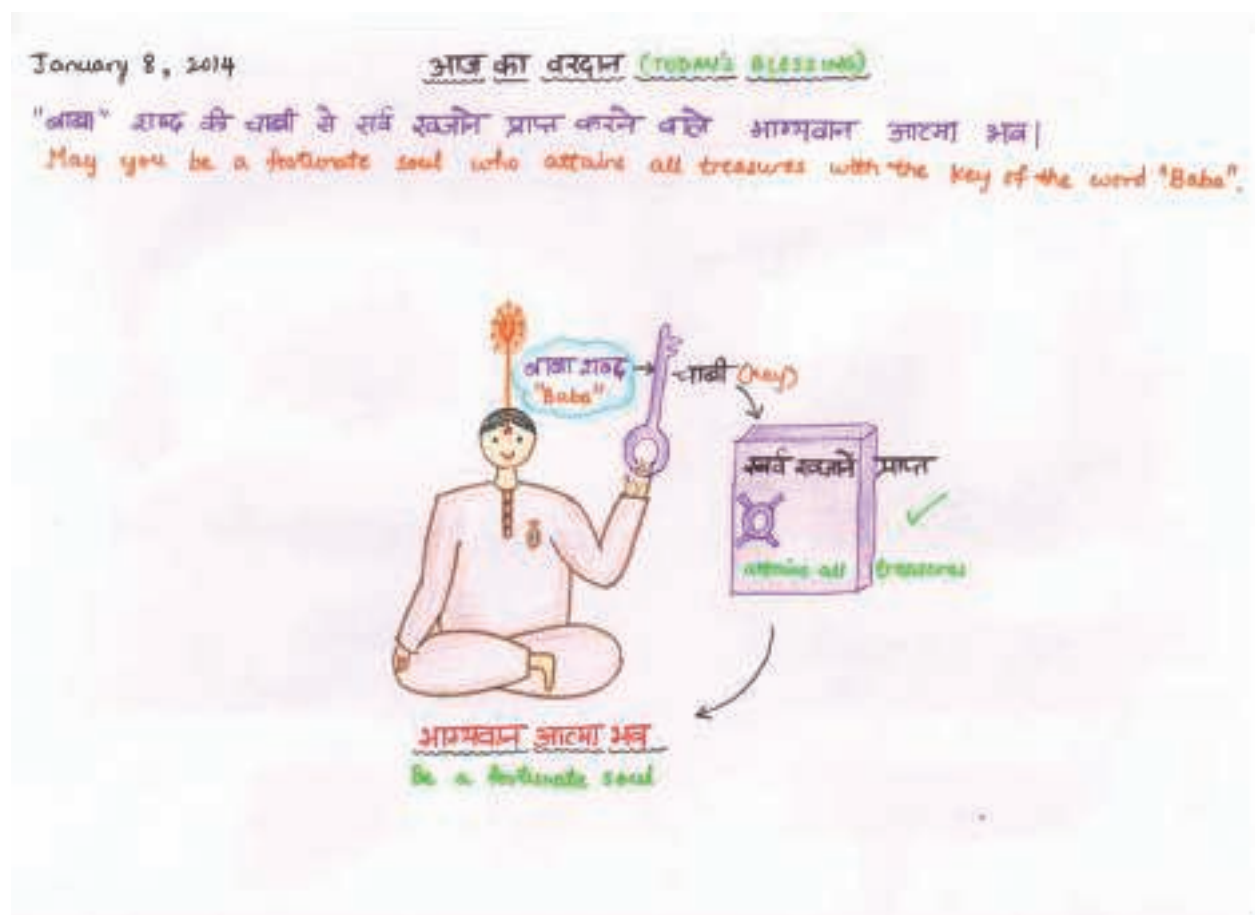 January 8, 2014
आज का वरदान (TODAY'S BLESSING)
"बाबा" शब्द की चाबी से सर्व खजाने प्राप्त करने वाले भाग्यवान आत्मा भव|
May you be a fortunate soul who attains all treasures with the key of the word "Baba".
बाबा शब्द
"Baba"
चाबी (key)
सर्व खजाने प्राप्त
attains all treasures
भाग्यवान आत्मा भव
Be a fortunate soul